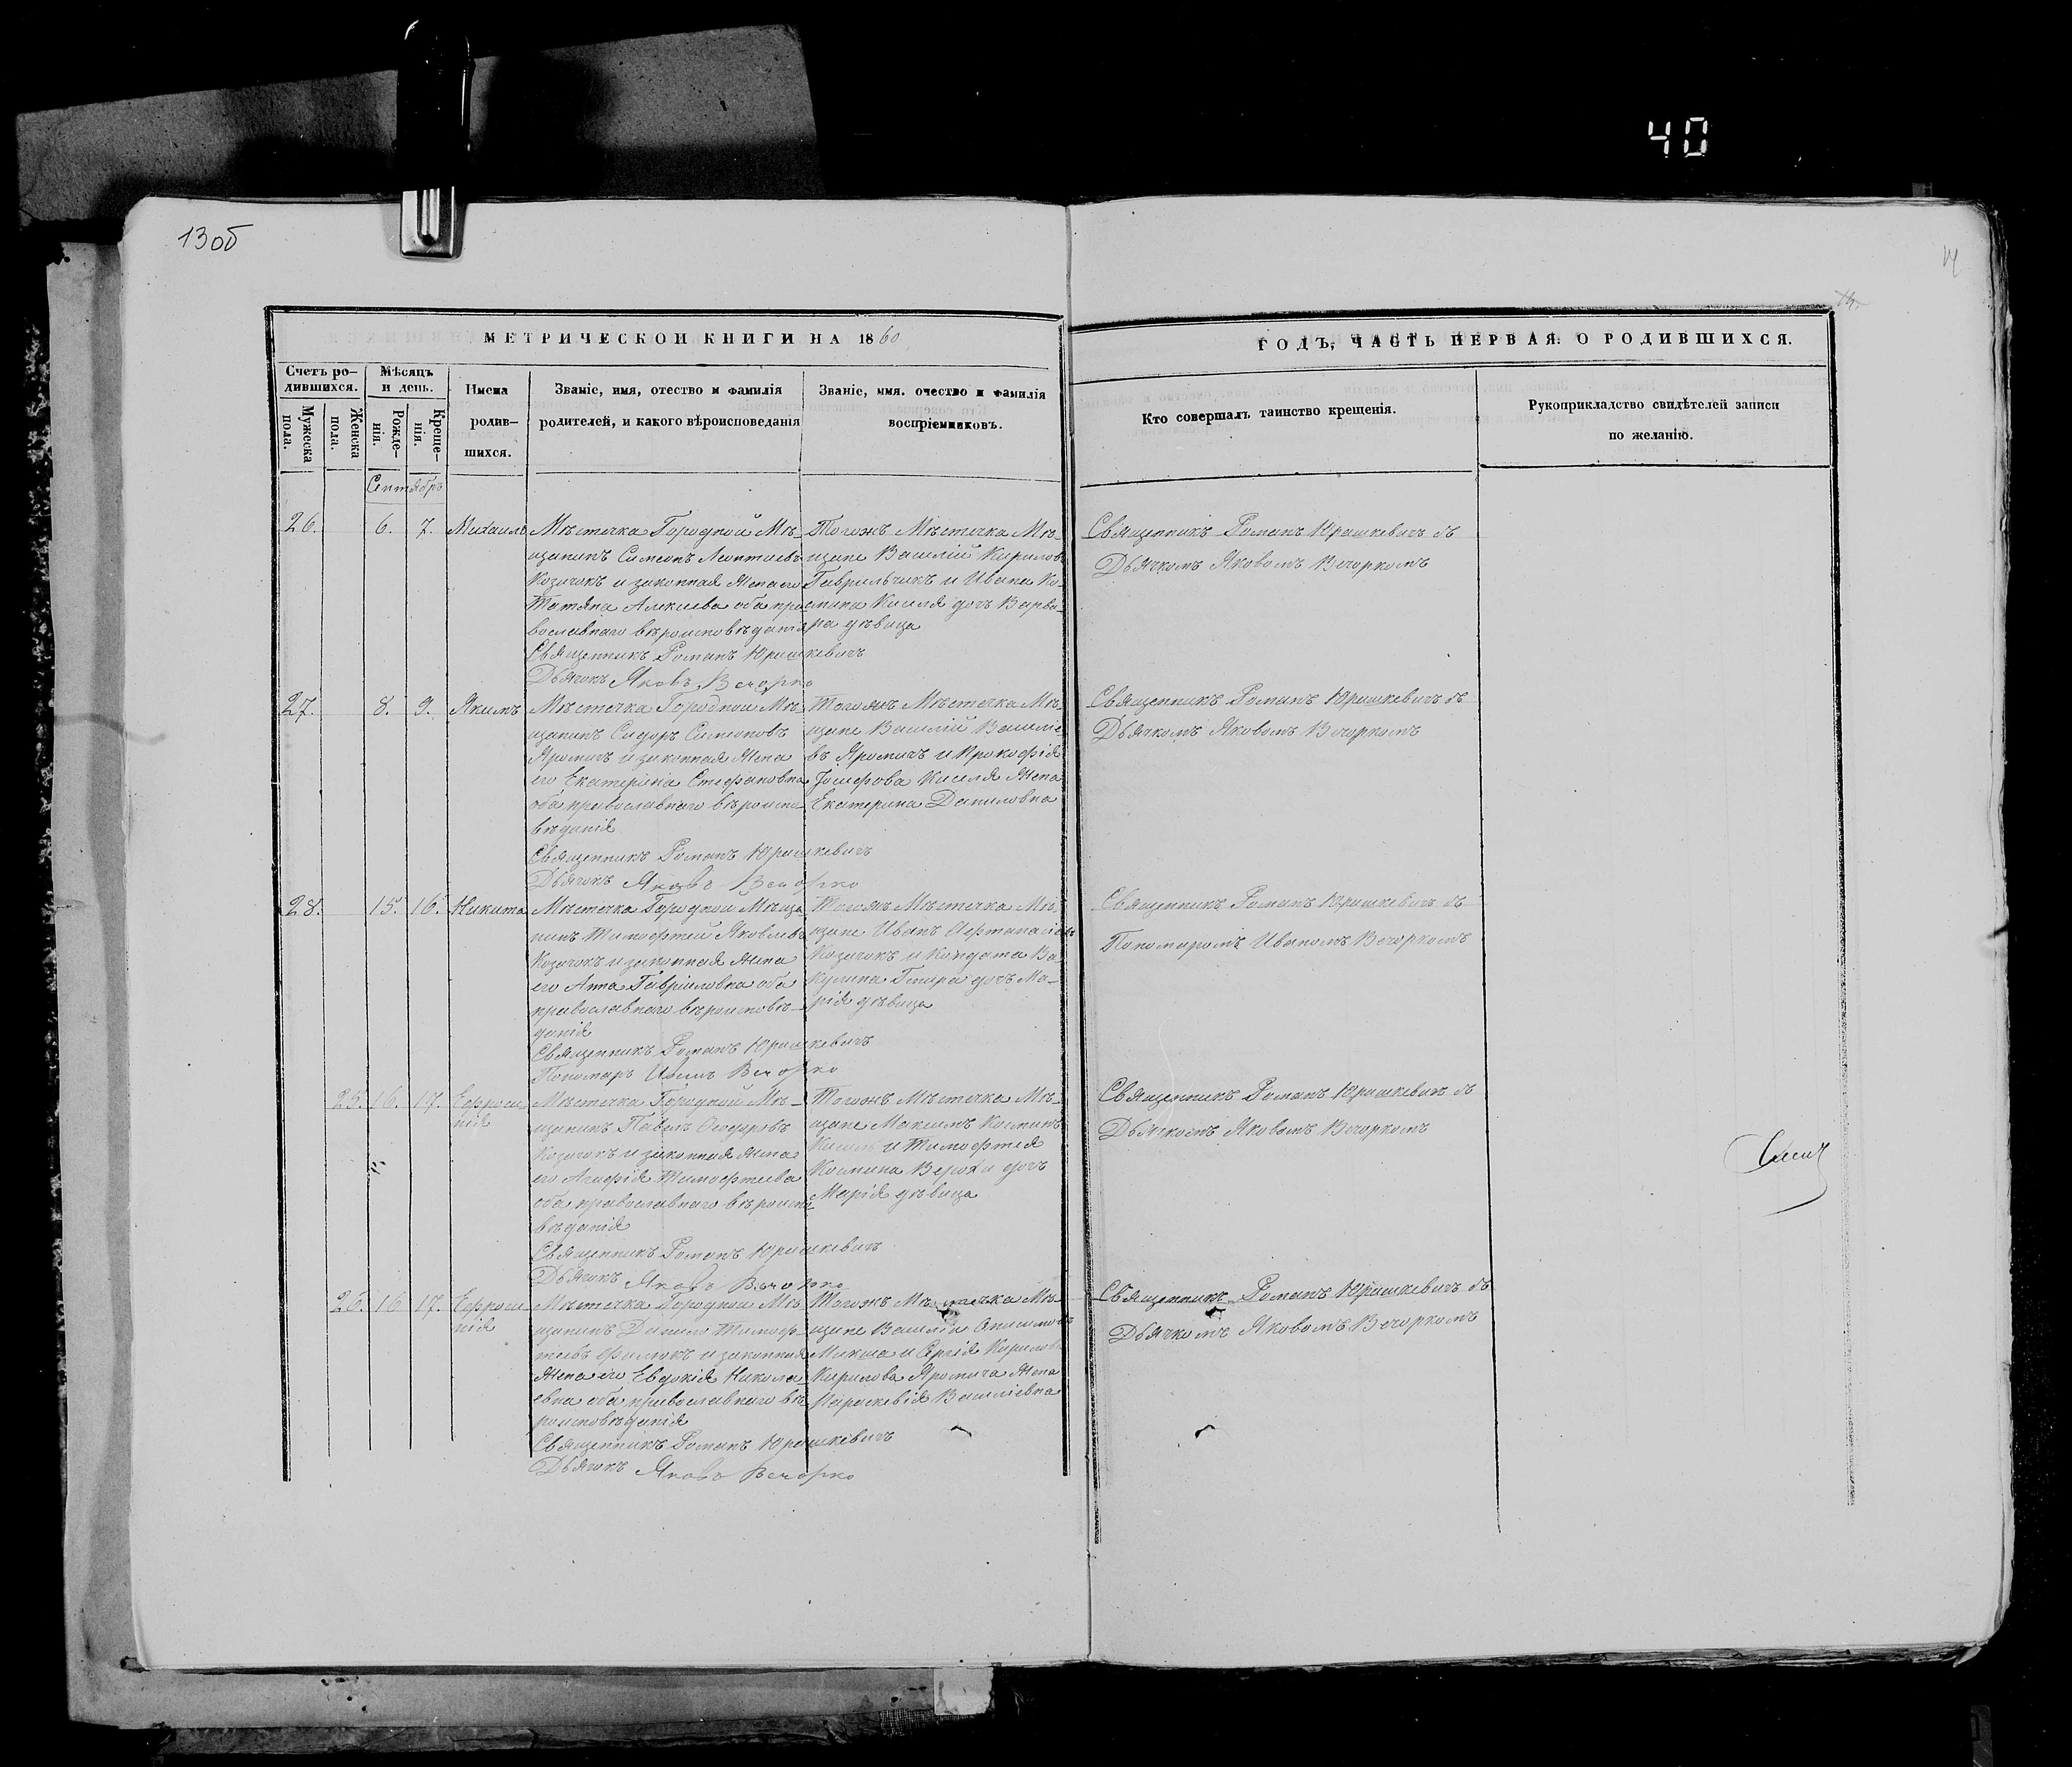 40
13об
14
МЕТРИЧЕСКОЙ КНИГИ НА 1860
ГОДЪ, ЧАСТЬ ПЕРВАЯ. О РОДИВШИХСЯ.
Счетъ ро-
дившихся.
Мѣсяцъ
и день.
Мужеска
пола.
Женска
пола.
Рожде-
нія.
Креще-
нія.
Имена
родив-
шихся.
Званіе, имя, отество и фамилія
родителей, и какого вѣроисповеданія
Званіе, имя. очество и фамилія
воспріемниковъ.
Кто совершалъ таинство крещенія.
Рукоприкладство свидѣтелей записи
по желанію.
Сентябрь
26. 6. 7. Михаилъ
Мѣстечка Городной Мѣ-
щанинъ Симеонъ Леонтіевъ
Козачокъ и законная Жена его
Татяна Алексіева оба пра
вославнаго вѣроисповѣданія
Священникъ Романъ Юрашкевичъ
Дьячокъ Яковъ Вечорко
Тогожъ Мѣстечка Мѣ-
щане Василій Кириловъ
Гаврильчикъ и Ивана Ко-
смина Киселя дочь Варва-
ра дѣвица
Священникъ Романъ Юрашкевичъ съ
Дьячкомъ Яковомъ Вечоркомъ
27. 8. 9. Якимъ
Мѣстечка Городной Мѣ-
щанинъ Сидоръ Симоновъ
Яромичъ и законная Жена
его Екатерина Стефановна
оба православнаго вѣроиспо-
вѣданія
Священникъ Романъ Юрашкевичъ
Дьячокъ Яковъ Вечорко
Тогожъ Мѣстечка Мѣ-
щане Василій Василіе-
въ Яромичъ и Прокофія
Іосифова Киселя Жена
Екатерина Даниловна
Священникъ Романъ Юрашкевичъ съ
Дьячкомъ Яковомъ Вечоркомъ
28. 15. 16. Никита
Мѣстечка Городной Мѣща
нинъ Тимофтей Яковлевъ
Козачокъ и законная Жена
его Анна Гавриловна оба
православнаго вѣроисповѣ-
данія
Священникъ Романъ Юрашкевичъ
Пономарь Иванъ Вечорко
Тогожъ Мѣстечка Мѣ-
щане Иванъ
Козачокъ и Кондата Ва-
кулина дочь Ма-
рія дѣвица
Священникъ Романъ Юрашкевичъ съ
Пономаромъ Иваномъ Вечоркомъ
25. 16. 17. Ефроси-
нія
Мѣстечка Городной Мѣ-
щанинъ Павелъ Феодоровъ
Козачокъ и законная Жена
его Агафія Тимофтеева
оба православнаго вѣроиспо-
вѣданія
Священникъ Романъ Юрашкевичъ
Дьячокъ Яковъ Вечорко
Тогожъ Мѣстечка Мѣ-
щане Максимъ Косминъ
Кисель и Тимофтея
Космина дочь
Марія дѣвица
Священникъ Романъ Юрашкевичъ съ
Дьячкомъ Яковомъ Вечоркомъ
26. 16. 17. Ефроси-
нія
Мѣстечка Городной Мѣ-
щанинъ Данило Тимоф-
тевъ и законная
Жена его Евдокія Никола
евна оба православнаго вѣ-
роисповѣданія
Священникъ Романъ Юрашкевичъ
Дьячокъ Яковъ Вечорко
Тогожъ Мѣстечка Мѣ-
щане Василій
и Сергія
Кирилова Яромича Жена
Параскевія Василіевна
Священникъ Романъ Юрашкевичъ съ
Дьячкомъ Яковомъ Вечоркомъ